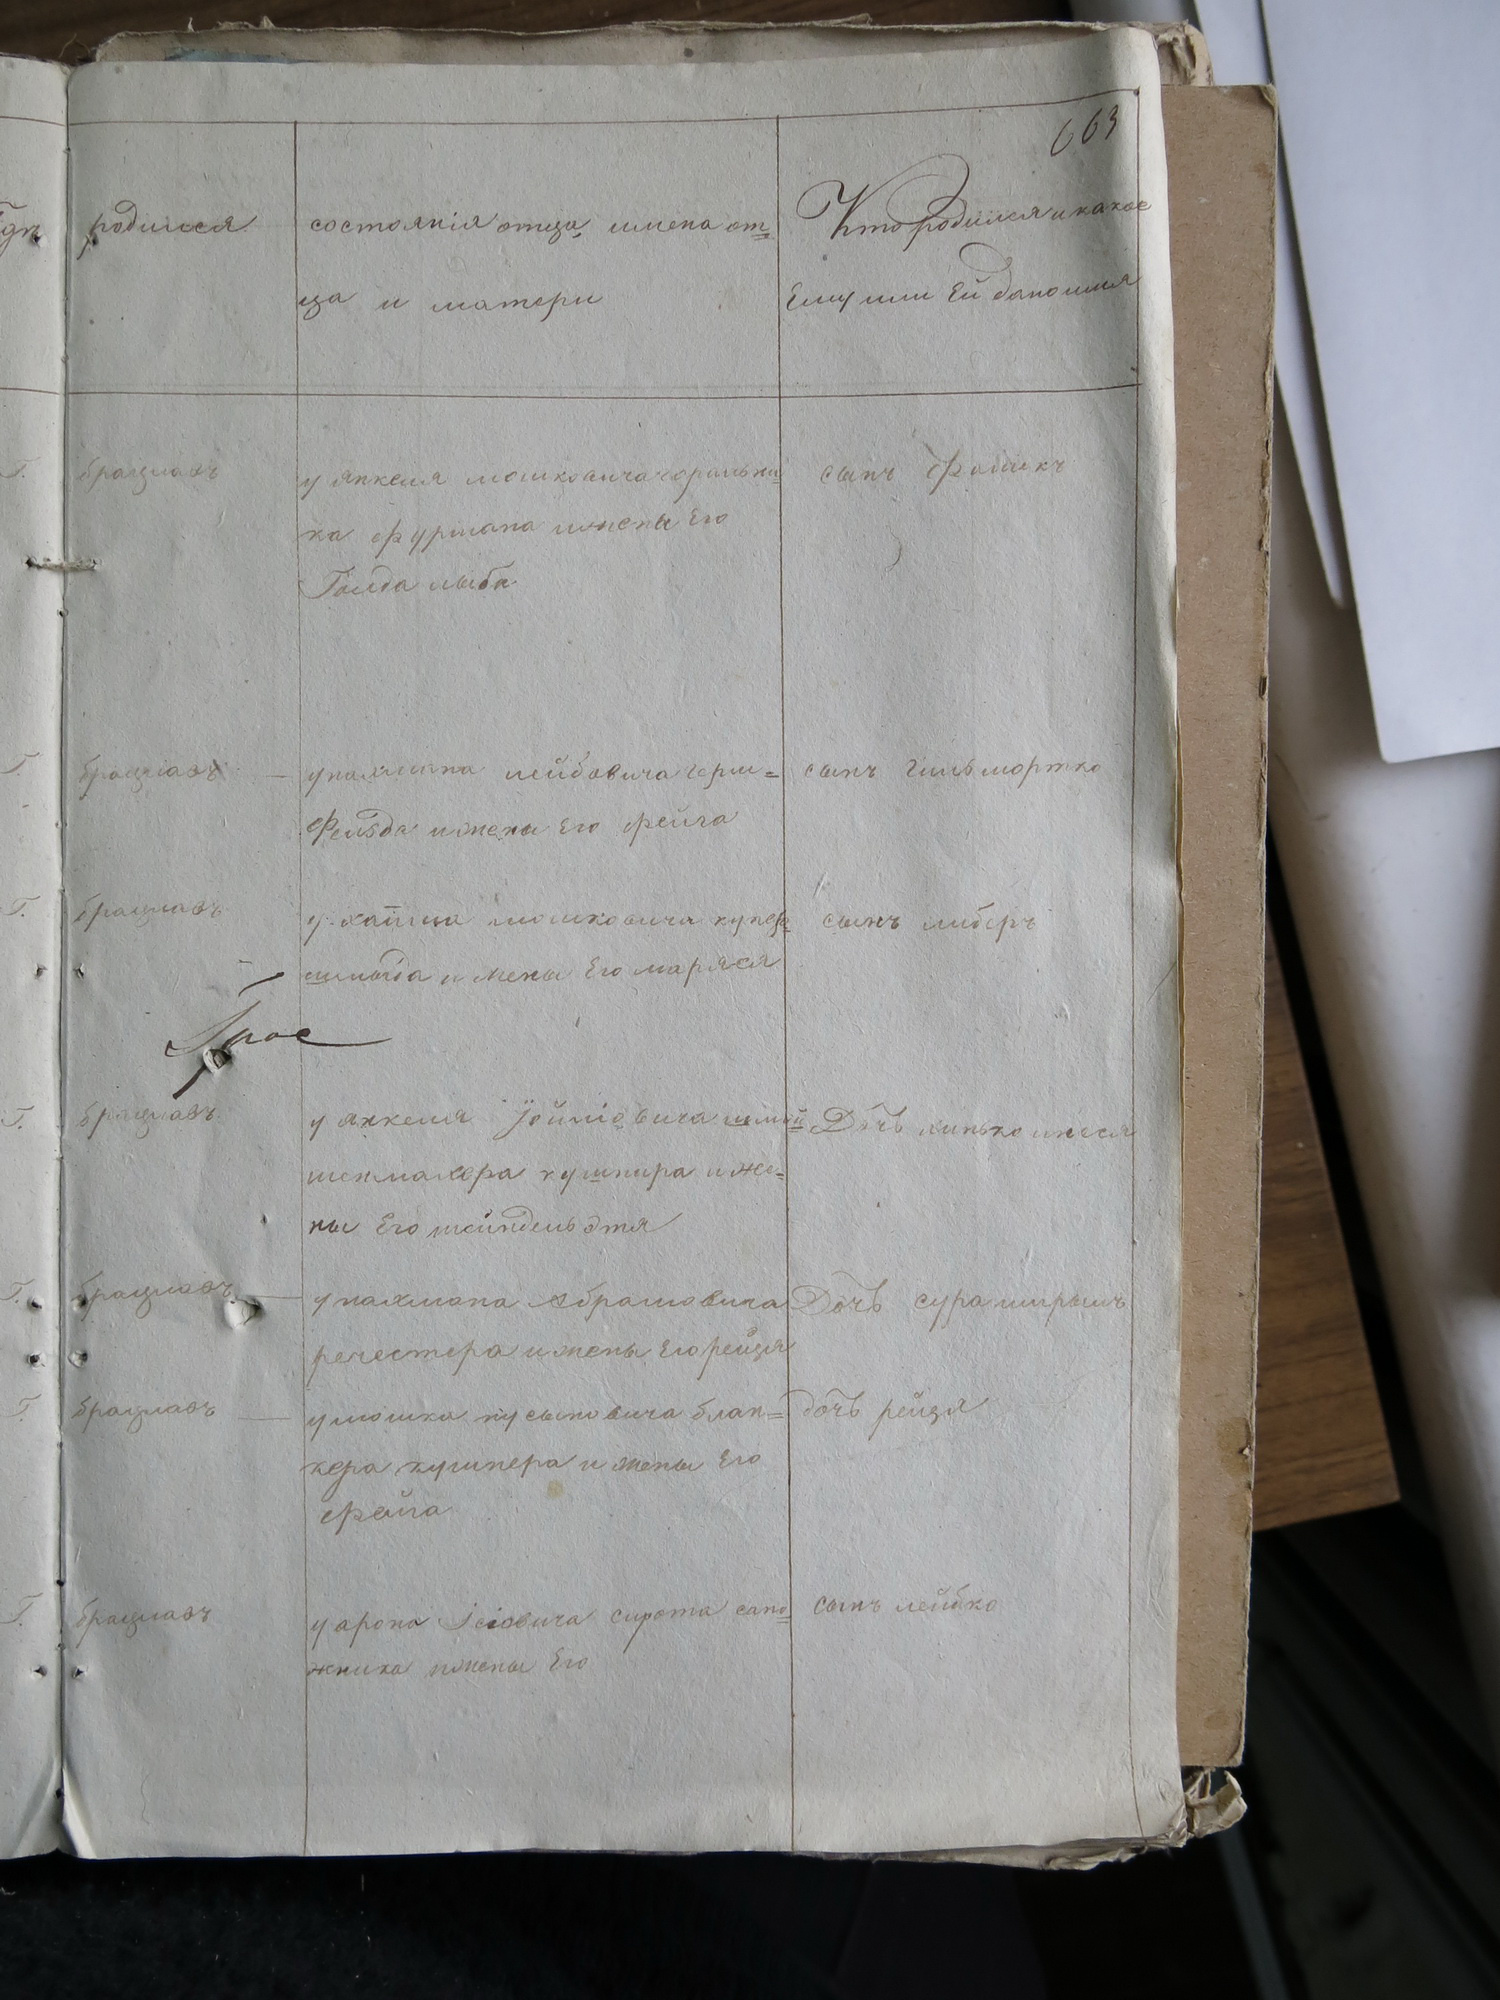 663
Гдѣ родился
состоянія отца, имена от=
ца и матери
Кто родился и какое
Ему или Ей дано имя
Г. брацлавъ
у янкеля мошковича горильни=
ка фурмана и жены Его
Голда лыба
сынъ Фавикъ
Г. брацлавъ
у нахмана лейбовича герш=
Фельда и жены Его фейга
сынъ гильмортко
Г. брацлавъ
у хаима мошковича купер=
шмыда и жены Его маряся
сынъ либеръ
Г. брацлавъ
у янкеля шмой=
шенмахера кушнира и же=
ны Его шейндель этя
Дочь хинько
Г. брацлавъ
у нахмана Абрамовича
регестера и жены Его рейзя
Дочь сура
Г. брацлавъ
у мошка нусыновича блан=
кера кушнера и жены Его
фейга
дочь рейзя
Г. брацлавъ
у арона Ісіовича сирота сапо=
жника и жены Его
сынъ лейбко